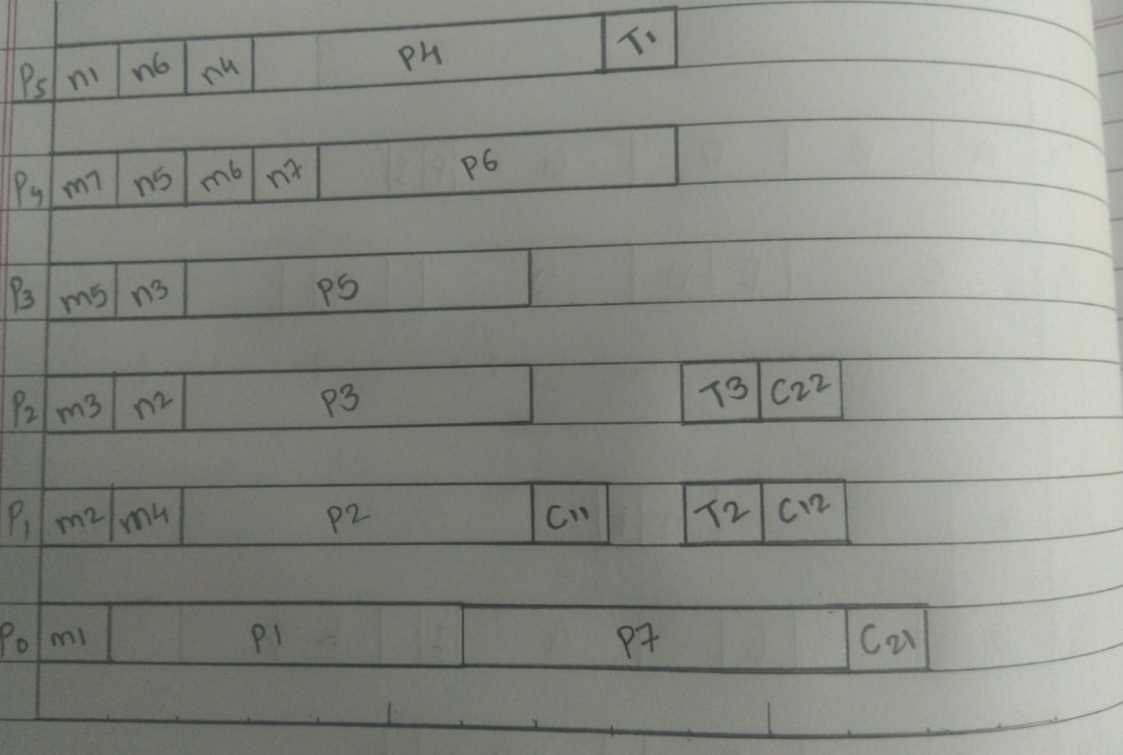 P5 n1 n6 n4 P4 T1
P4 m7 n5 m6 n7 P6
P3 m5 n3 P5
P2 m3 n2 P3 T3 C22
P1 m2 m4 P2 C11 T2 C12
P0 m1 P1 P7 C21